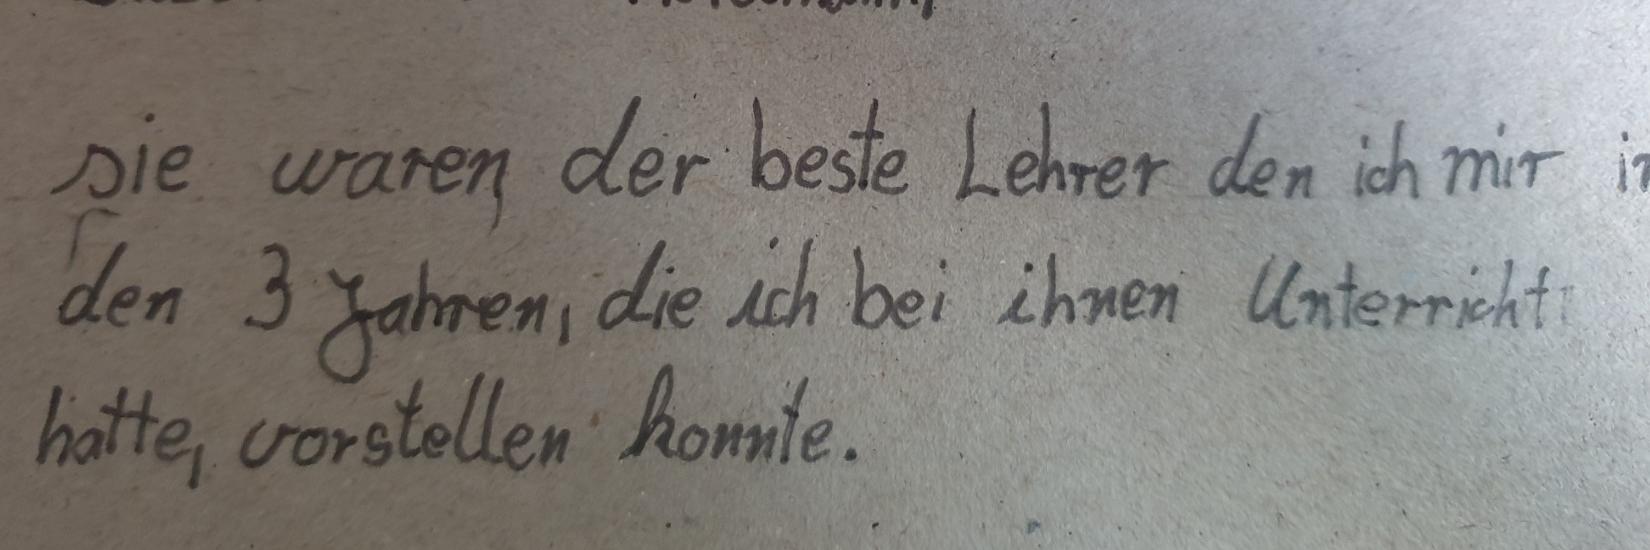 sie waren der beste Lehrer den ich mir in
den 3 Jahren, die ich bei ihnen Unterricht
hatte, vorstellen konnte.